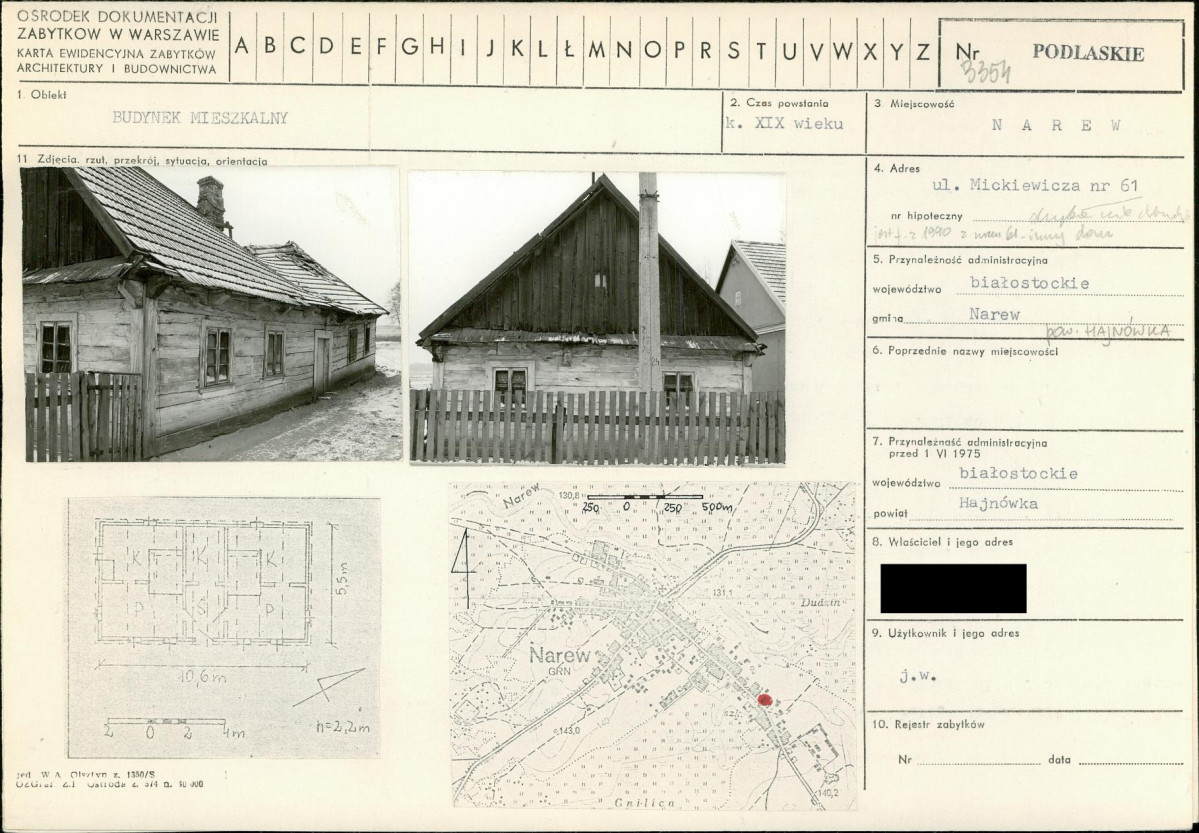 OŚRODEK DOKUMENTACJI
ZABYTKÓW W WARSZAWIE
KARTA EWIDENCYJNA ZABYTKÓW
ARCHITEKTURY I BUDOWNICTWA
A B C D E F G H I J K L Ł M N O P R S T U V W X Y Z
Nr 3354 PODLASKIE
1. Obiekt
BUDYNEK MIESZKALNY
2. Czas powstania
k. XIX wieku
3 Miejscowość
N A R E W
11 Zdjęcia, rzut, przekrój, sytuacja, orientacja
4. Adres
ul. Mickiewicza nr 61
nr hipoteczny
5. Przynależność administracyjna
województwo białostockie
gmina Narew
pow. HAJNÓWKA
6. Poprzednie nazwy miejscowości
7. Przynależność administracyjna
przed 1 VI 1975
województwo białostockie
powiat Hajnówka
8. Właściciel i jego adres
9. Użytkownik i jego adres
j.w.
10. Rejestr zabytków
Nr data
K K K
P S P
5,5m
10,6m
2 0 2 4m
h=2,2m
Narew
130,8
250 0 250 500m
131,1
Dudzin
Narew
GRN
szk.
143,0
140,2
Gnilica